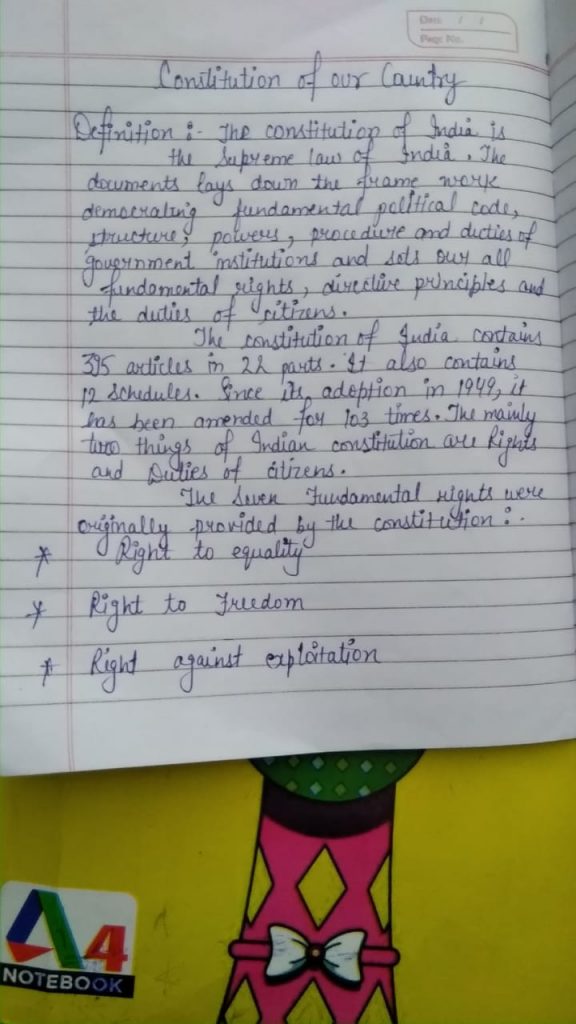 Date / /
Page No.
Constitution of our Country
Definition :- The constitution of India is
the Supreme law of India. The
documents lays down the frame work
democrating fundamental political code,
structure, powers, procedure and duties of
government institutions and sets our all
fundamental rights, directive principles and
the duties of citizens.
The constitution of India contains
395 articles in 22 parts. It also contains
12 Schedules. Since its adoption in 1949, it
has been amended for 103 times. The mainly
two things of Indian constitution are Rights
and Duties of citizens.
The Seven Fundamental rights were
originally provided by the constitution :-
* Right to equality
* Right to Freedom
* Right against exploitation
A4
NOTEBOOK